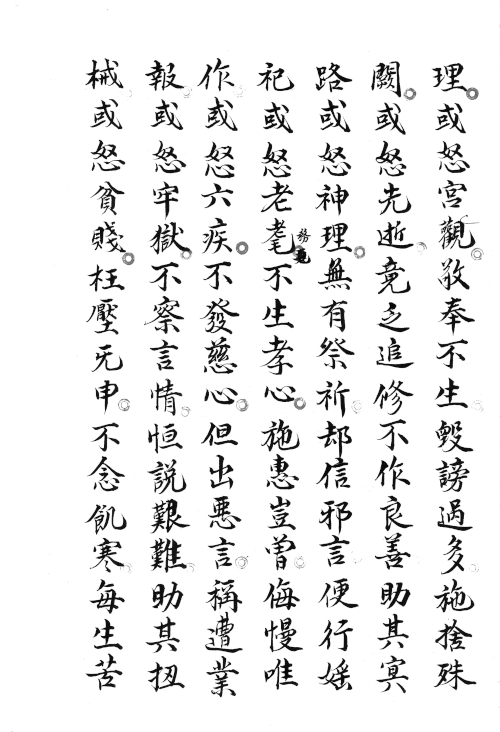 理或怒宮觀敬奉不生毀謗過多施捨殊
闕或怒先逝竟乏追修不作良善助其冥
路或怒神理無有祭祈却信邪言便行婬
祀或怒老耄不生孝心施惠豈曽侮慢唯
作或怒六疾不發慈心但出悪言稱遭業
報或怒牢獄不察言情恒説艱難助其扭
械或怒貧賤枉壓无申不念飢寒每生苦